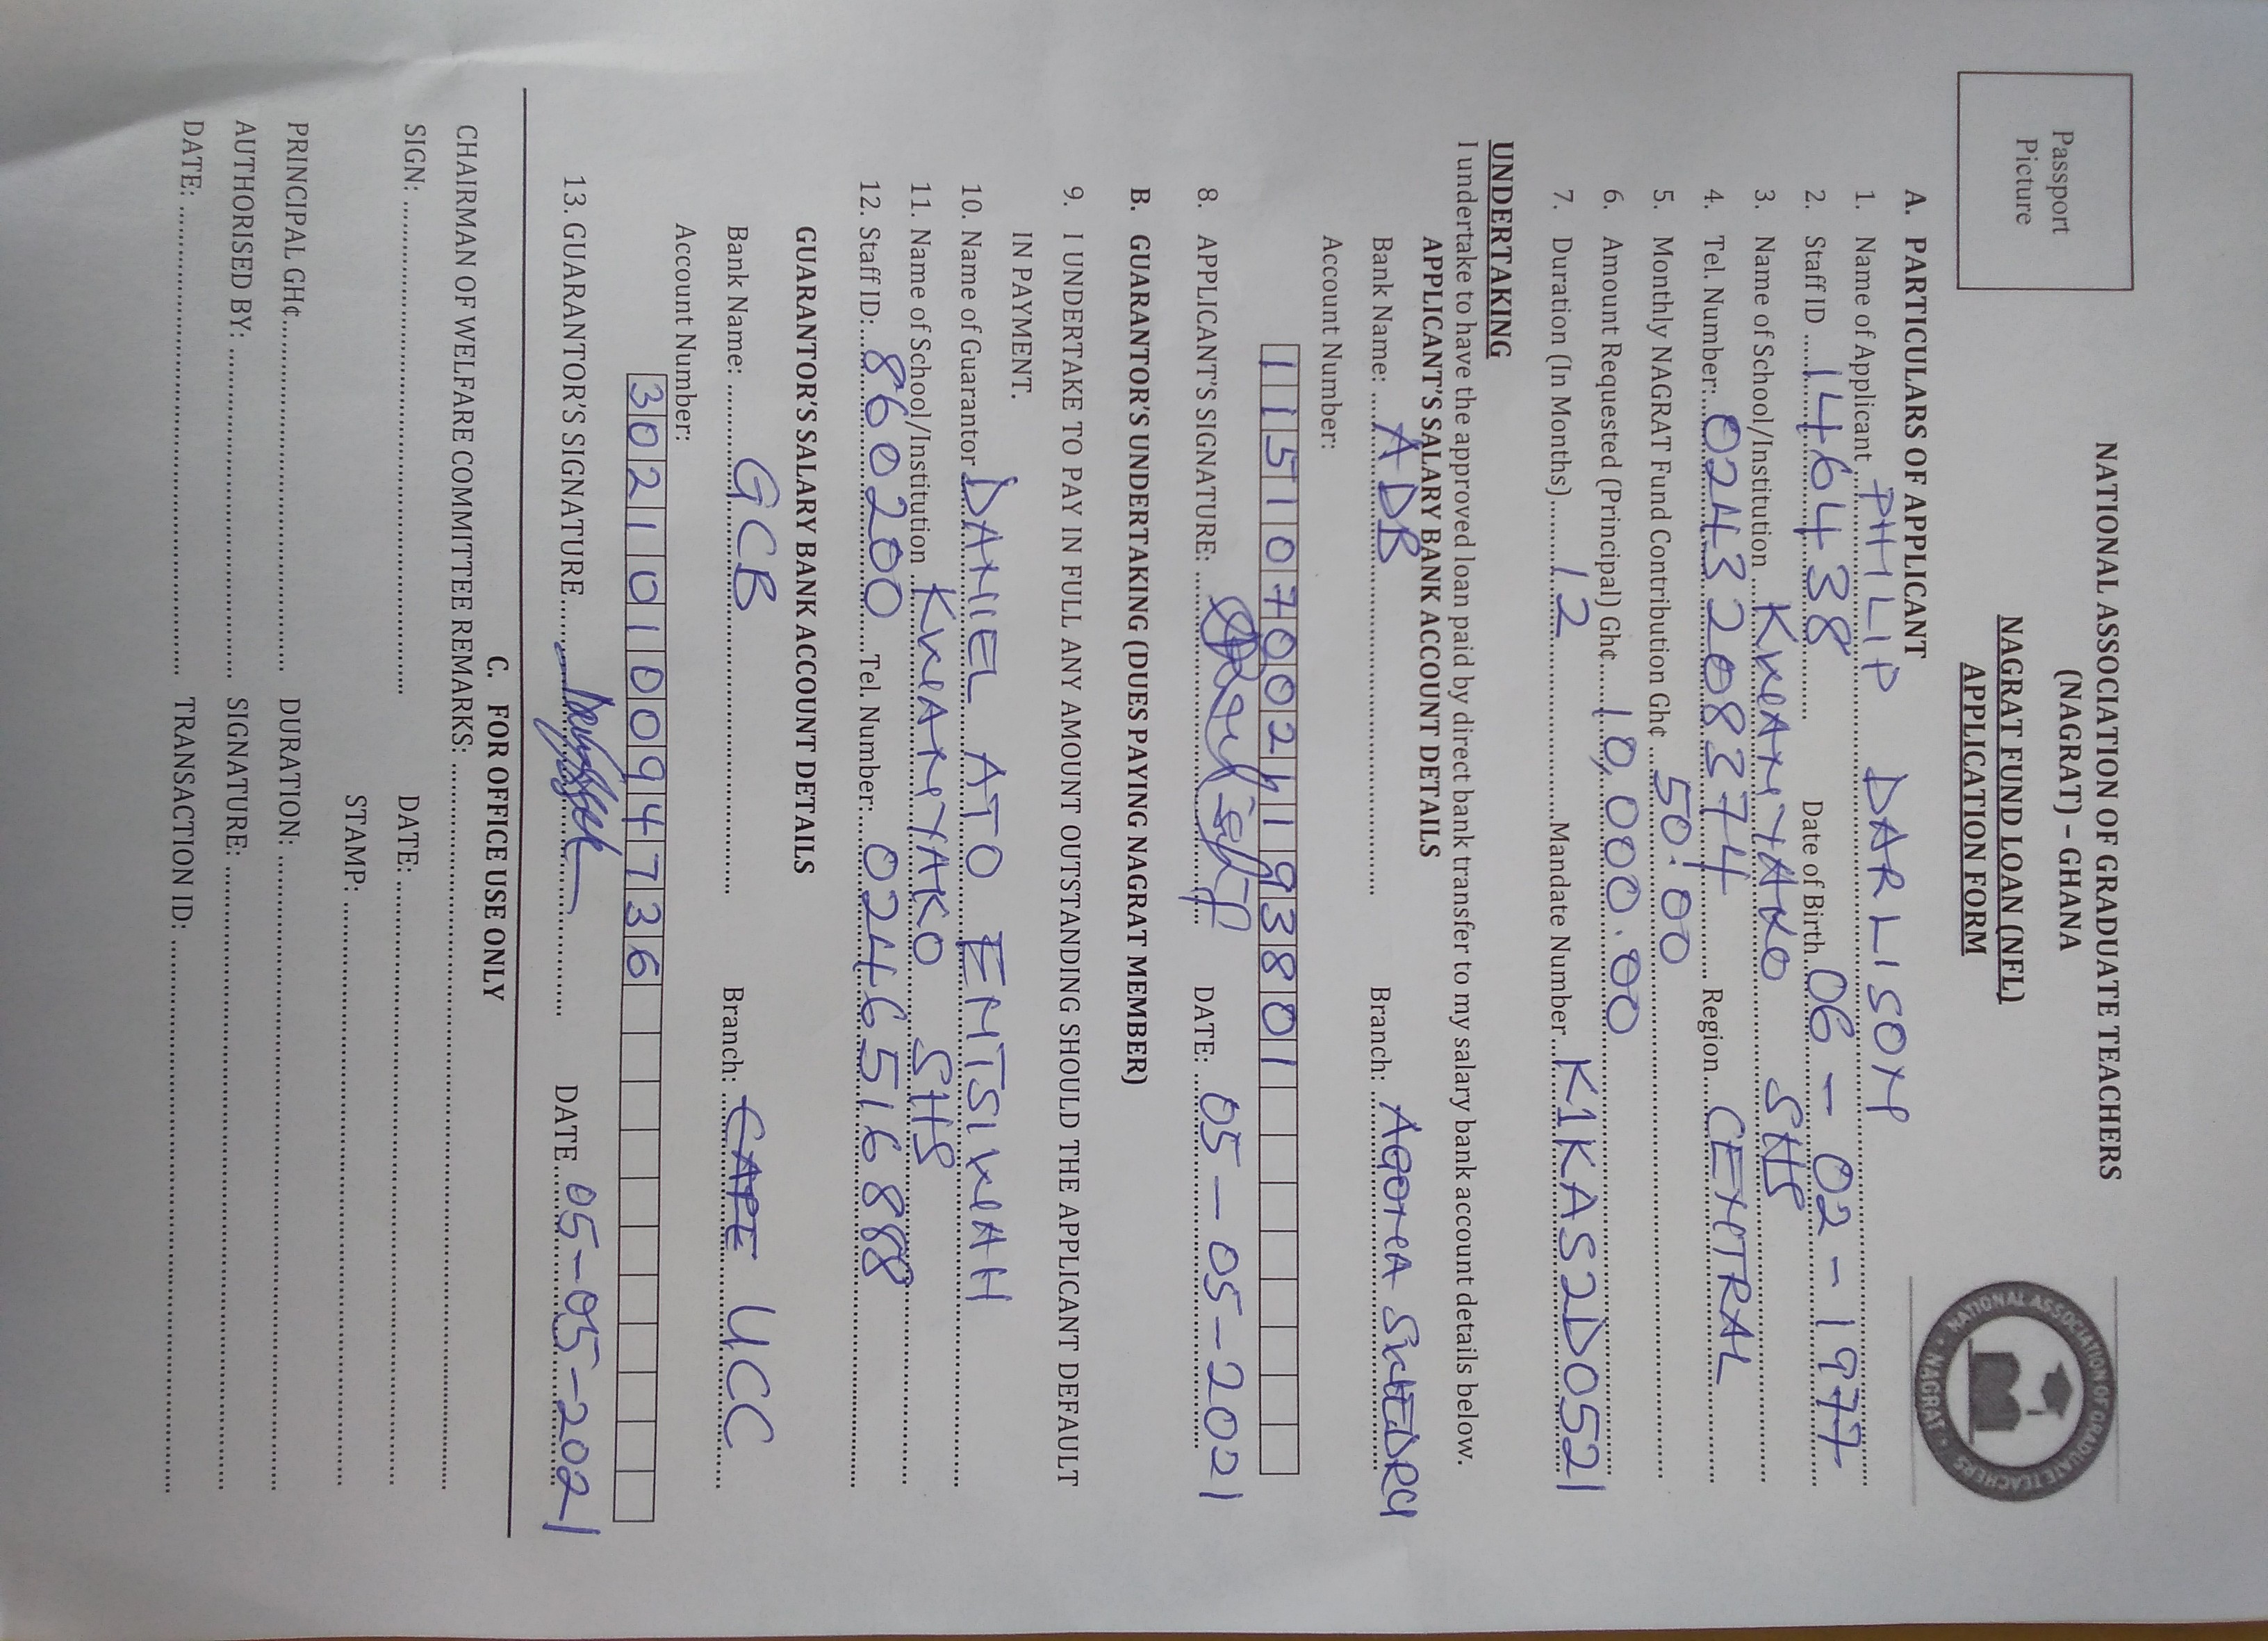 Passport
Picture
NATIONAL ASSOCIATION OF GRADUATE TEACHERS
(NAGRAT) – GHANA
NAGRAT FUND LOAN (NFL)
APPLICATION FORM
NATIONAL ASSOCIATION OF GRADUATE TEACHERS
• NAGRAT •
A. PARTICULARS OF APPLICANT
1. Name of Applicant PHILIP DARLISON
2. Staff ID ......146438....... Date of Birth..06-02-1977
3. Name of School/Institution ...KWANYAKO SHS
4. Tel. Number:...0243208274......... Region....CENTRAL
5. Monthly NAGRAT Fund Contribution Gh¢ ...50.00
6. Amount Requested (Principal) Gh¢......10,000.00
7. Duration (In Months).......12.......... Mandate Number ...K1KAS2D0521
UNDERTAKING
I undertake to have the approved loan paid by direct bank transfer to my salary bank account details below.
APPLICANT'S SALARY BANK ACCOUNT DETAILS
Bank Name: ....ADB.......... Branch: ..AGONA SWEDRU
Account Number:
1151070021193801
8. APPLICANT'S SIGNATURE: ..... DATE: ...05-05-2021
B. GUARANTOR'S UNDERTAKING (DUES PAYING NAGRAT MEMBER)
9. I UNDERTAKE TO PAY IN FULL ANY AMOUNT OUTSTANDING SHOULD THE APPLICANT DEFAULT
IN PAYMENT.
10. Name of Guarantor DANIEL ATO ENTSIWAH
11. Name of School/Institution ..KWANYAKO SHS
12. Staff ID:...860200....Tel. Number:....0246516888
GUARANTOR'S SALARY BANK ACCOUNT DETAILS
Bank Name: .........GCB.......... Branch: ...CAPE UCC
Account Number:
3021010094736
13. GUARANTOR'S SIGNATURE ........ DATE...05-05-2021
C. FOR OFFICE USE ONLY
CHAIRMAN OF WELFARE COMMITTEE REMARKS: ..........
SIGN: .......... DATE: ..........
STAMP: ..........
PRINCIPAL GH¢.......... DURATION: ..........
AUTHORISED BY: .......... SIGNATURE: ..........
DATE: .......... TRANSACTION ID: ..........